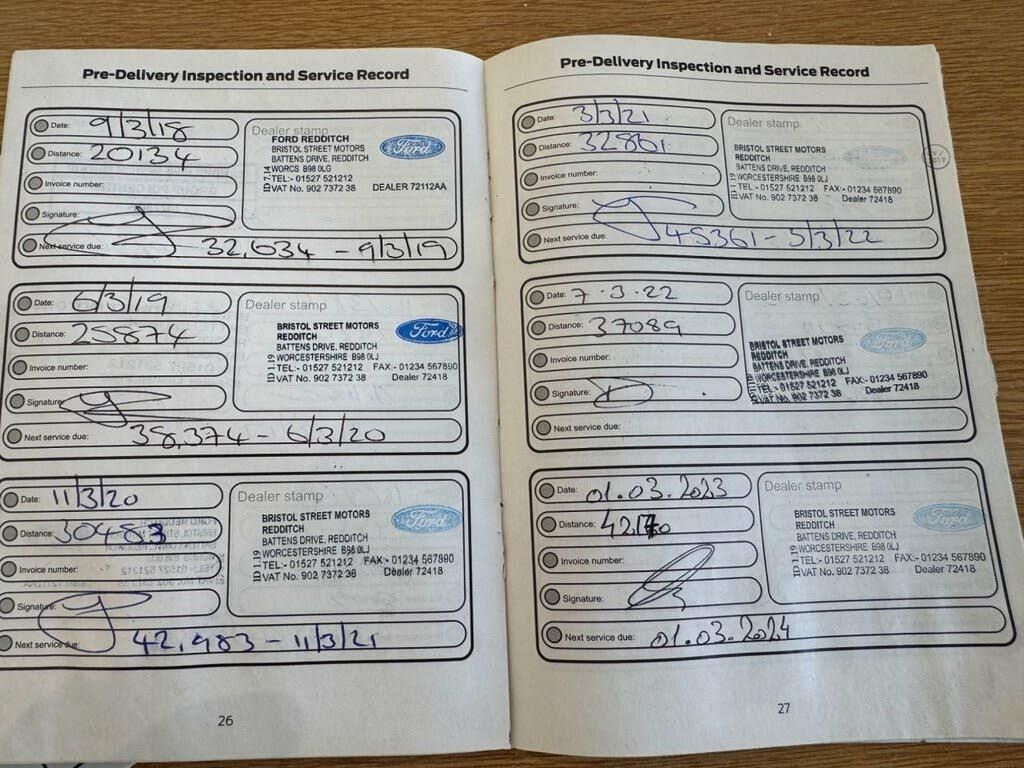 Pre-Delivery Inspection and Service Record
Date: 9/3/18
Distance: 20134
Invoice number:
Signature:
Next service due: 32,634 - 9/3/19
Dealer stamp
FORD REDDITCH
BRISTOL STREET MOTORS
BATTENS DRIVE, REDDITCH
WORCS B98 0LG
TEL:- 01527 521212
VAT No. 902 7372 38 DEALER 72112AA
Ford
Date: 6/3/19
Distance: 25874
Invoice number:
Signature:
Next service due: 38,374 - 6/3/20
Dealer stamp
BRISTOL STREET MOTORS
REDDITCH
BATTENS DRIVE, REDDITCH
WORCESTERSHIRE B98 0LJ
TEL:- 01527 521212 FAX:- 01234 567890
VAT No. 902 7372 38 Dealer 72418
ID 1-19
Ford
Date: 11/3/20
Distance: 30483
Invoice number:
Signature:
Next service due: 42,983 - 11/3/21
Dealer stamp
BRISTOL STREET MOTORS
REDDITCH
BATTENS DRIVE, REDDITCH
WORCESTERSHIRE B98 0LJ
TEL:- 01527 521212 FAX:- 01234 567890
VAT No. 902 7372 38 Dealer 72418
ID 1-19
Ford
26
Pre-Delivery Inspection and Service Record
Date: 3/3/21
Distance: 32861
Invoice number:
Signature:
Next service due: 45361 - 3/3/22
Dealer stamp
BRISTOL STREET MOTORS
REDDITCH
BATTENS DRIVE, REDDITCH
WORCESTERSHIRE B98 0LJ
TEL:- 01527 521212 FAX:- 01234 567890
VAT No. 902 7372 38 Dealer 72418
Ford
Date: 7.3.22
Distance: 37089
Invoice number:
Signature:
Next service due:
Dealer stamp
BRISTOL STREET MOTORS
REDDITCH
BATTENS DRIVE, REDDITCH
WORCESTERSHIRE B98 0LJ
TEL:- 01527 521212 FAX:- 01234 567890
VAT No. 902 7372 38 Dealer 72418
Ford
Date: 01.03.2023
Distance:
Invoice number:
Signature:
Next service due: 01.03.2024
Dealer stamp
BRISTOL STREET MOTORS
REDDITCH
BATTENS DRIVE, REDDITCH
WORCESTERSHIRE B98 0LJ
TEL:- 01527 521212 FAX:- 01234 567890
VAT No. 902 7372 38 Dealer 72418
ID 1-19
Ford
27